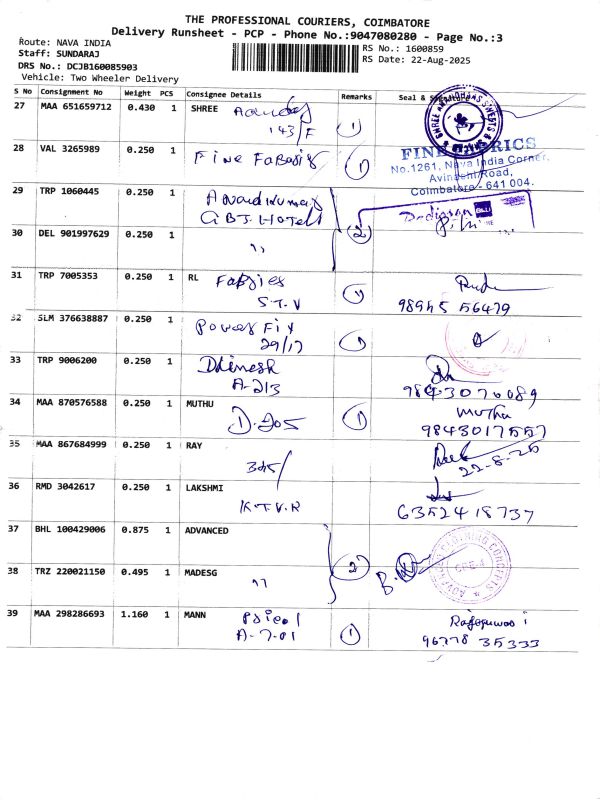 THE PROFESSIONAL COURIERS, COIMBATORE
Delivery Runsheet - PCP - Phone No.:9047080280 - Page No.:3
Route: NAVA INDIA
Staff: SUNDARAJ
DRS No.: DCJB160085903
Vehicle: Two Wheeler Delivery
RS No.: 1600859
RS Date: 22-Aug-2025
S No Consignment No Weight PCS Consignee Details Remarks Seal &
27 MAA 651659712 0.430 1 SHREE
143/F 1
28 VAL 3265989 0.250 1 Fine Fabrics 1
FINE FABRICS
No.1261, Nava India Corner,
Avinashi Road,
Coimbatore - 641 004.
29 TRP 1060445 0.250 1 Anandkumar
GBT. HOTEL 2
30 DEL 901997629 0.250 1 "
31 TRP 7005353 0.250 1 RL Fabries
S.T.V 1
98945 56479
32 SLM 376638887 0.250 1 Power Fix
29/17 1
33 TRP 9006200 0.250 1 Dhinesh
A-213
9843070089
34 MAA 870576588 0.250 1 MUTHU
D-205 1
Muthu
9843017557
35 MAA 867684999 0.250 1 RAY
305/
22-8-25
36 RMD 3042617 0.250 1 LAKSHMI
K.T.V.R
6352418737
37 BHL 100429006 0.875 1 ADVANCED
2
38 TRZ 220021150 0.495 1 MADESG
"
39 MAA 298286693 1.160 1 MANN
A-7-01 1
96778 35333